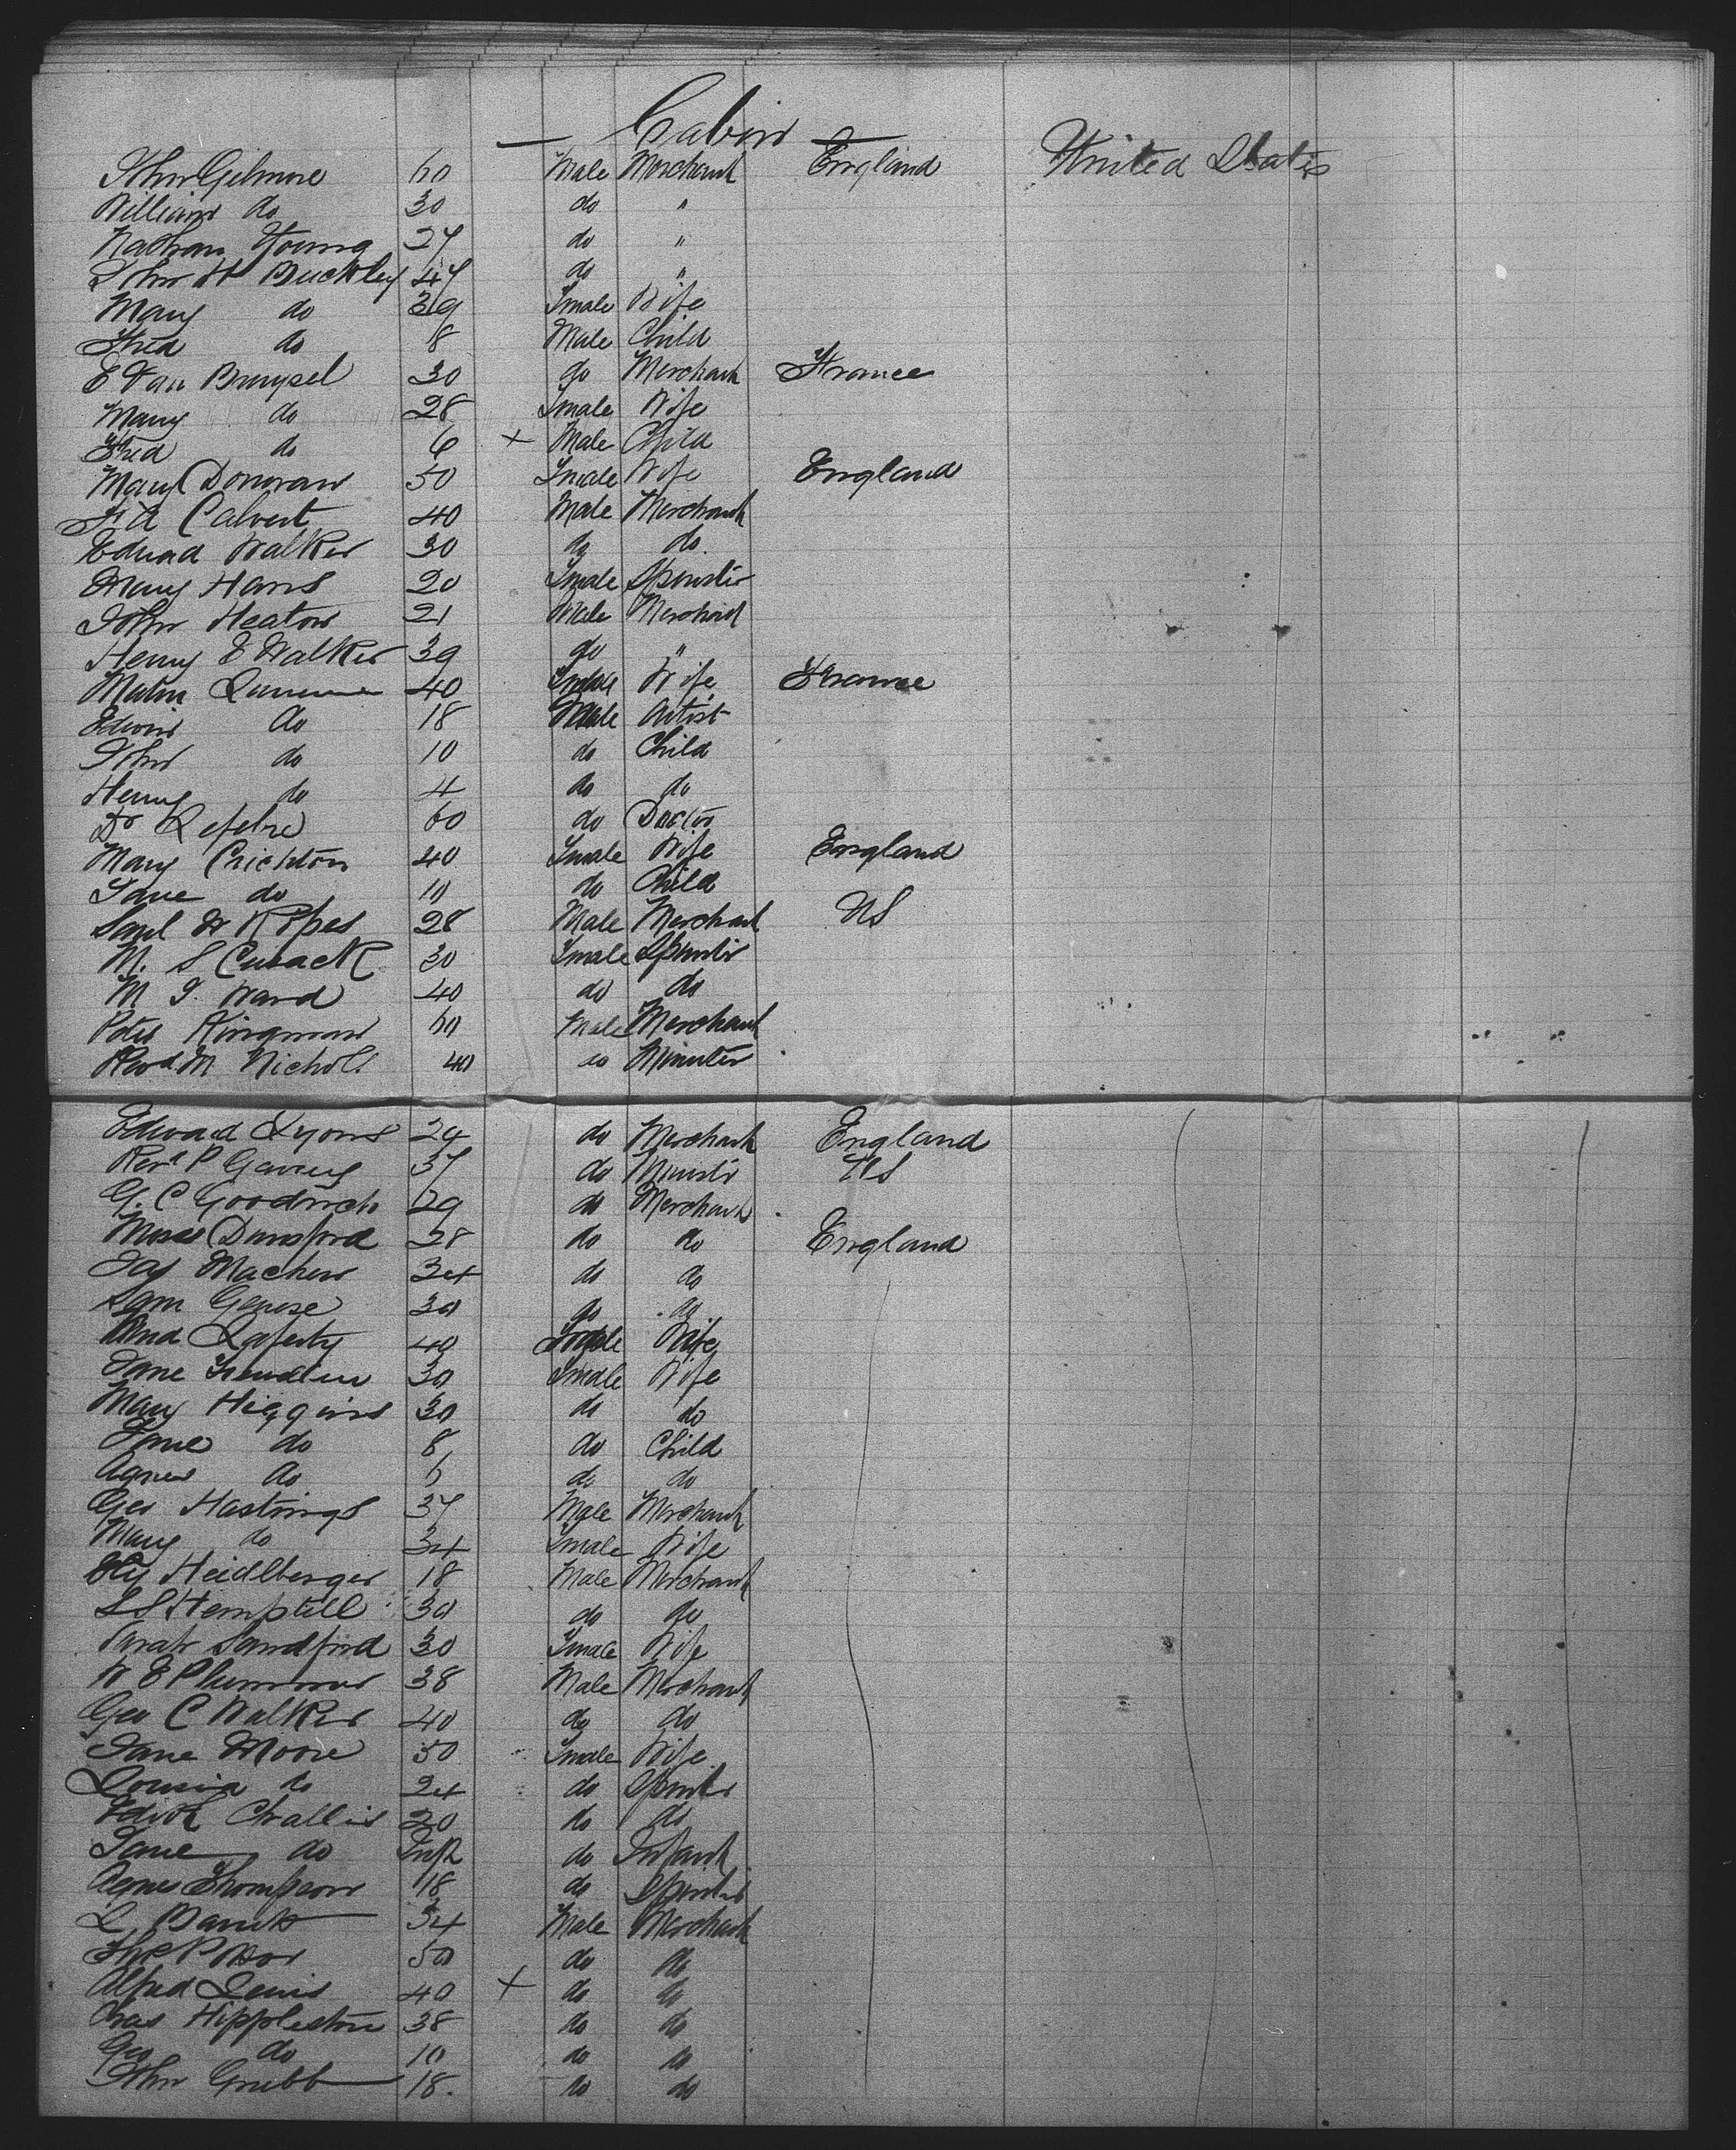 Cabin
John Gilmore 60 Male Merchant England United States
William do 30 do "
Nathan Young 27 do "
John H Buckley 47 do "
Mary do 39 Fmale Wife
Fred do 8 Male Child
E Van Bruysel 30 do Merchant France
Mary do 28 Fmale Wife
Fred do 6 + Male Child
Mary Donovan 50 Fmale Wife England
Calvert 40 Male Merchant
Edward Walker 30 do do
Mary Harris 20 Fmale Spinster
John Heaton 21 Male Merchant
Henry E Walker 39 do "
40 Fmale Wife France
Edwin do 18 Male Artist
John do 10 do Child
Henry do 4 do do
Dr Lefebre 60 do Doctor
Mary Crichton 40 Fmale Wife England
Jane do 10 do Child
Saml W K Opes 28 Male Merchant US
M. S Cusack 30 Fmale Spinster
M J. Ward 40 do do
Peter Kingman 60 Male Merchant
Revd M Nicholl 40 do Minister
Edward Lyons 24 do Merchant England
Revd P 37 do Minister US
G. C Goodrich 29 do Merchant
Moses Dunsford 28 do do England
Jas Machen 34 do do
Sam George 30 do do
Lafferty 40 Fmale Wife
Jane 30 Fmale Wife
Mary Higgins 30 do do
Jane do 8 do Child
Agnes do 6 do do
Geo Hastings 37 Male Merchant
Mary do 34 Fmale Wife
Hy Heidlberger 18 Male Merchant
S S Hemphill 30 do do
Sarah Sandford 30 Fmale Wife
W E Plummer 38 Male Merchant
Geo C Walker 40 do do
Jane Moore 50 Fmale Wife
Louisa do 24 do Spinster
Edith Challis 20 do do
Jane do Inft do Infant
Agnes Thompson 18 do Spinster
34 Male Merchant
50 do do
Alfred Lewis 40 + do do
Chas Hippleston 38 do do
Geo do 10 do do
John Grubb 18. do do